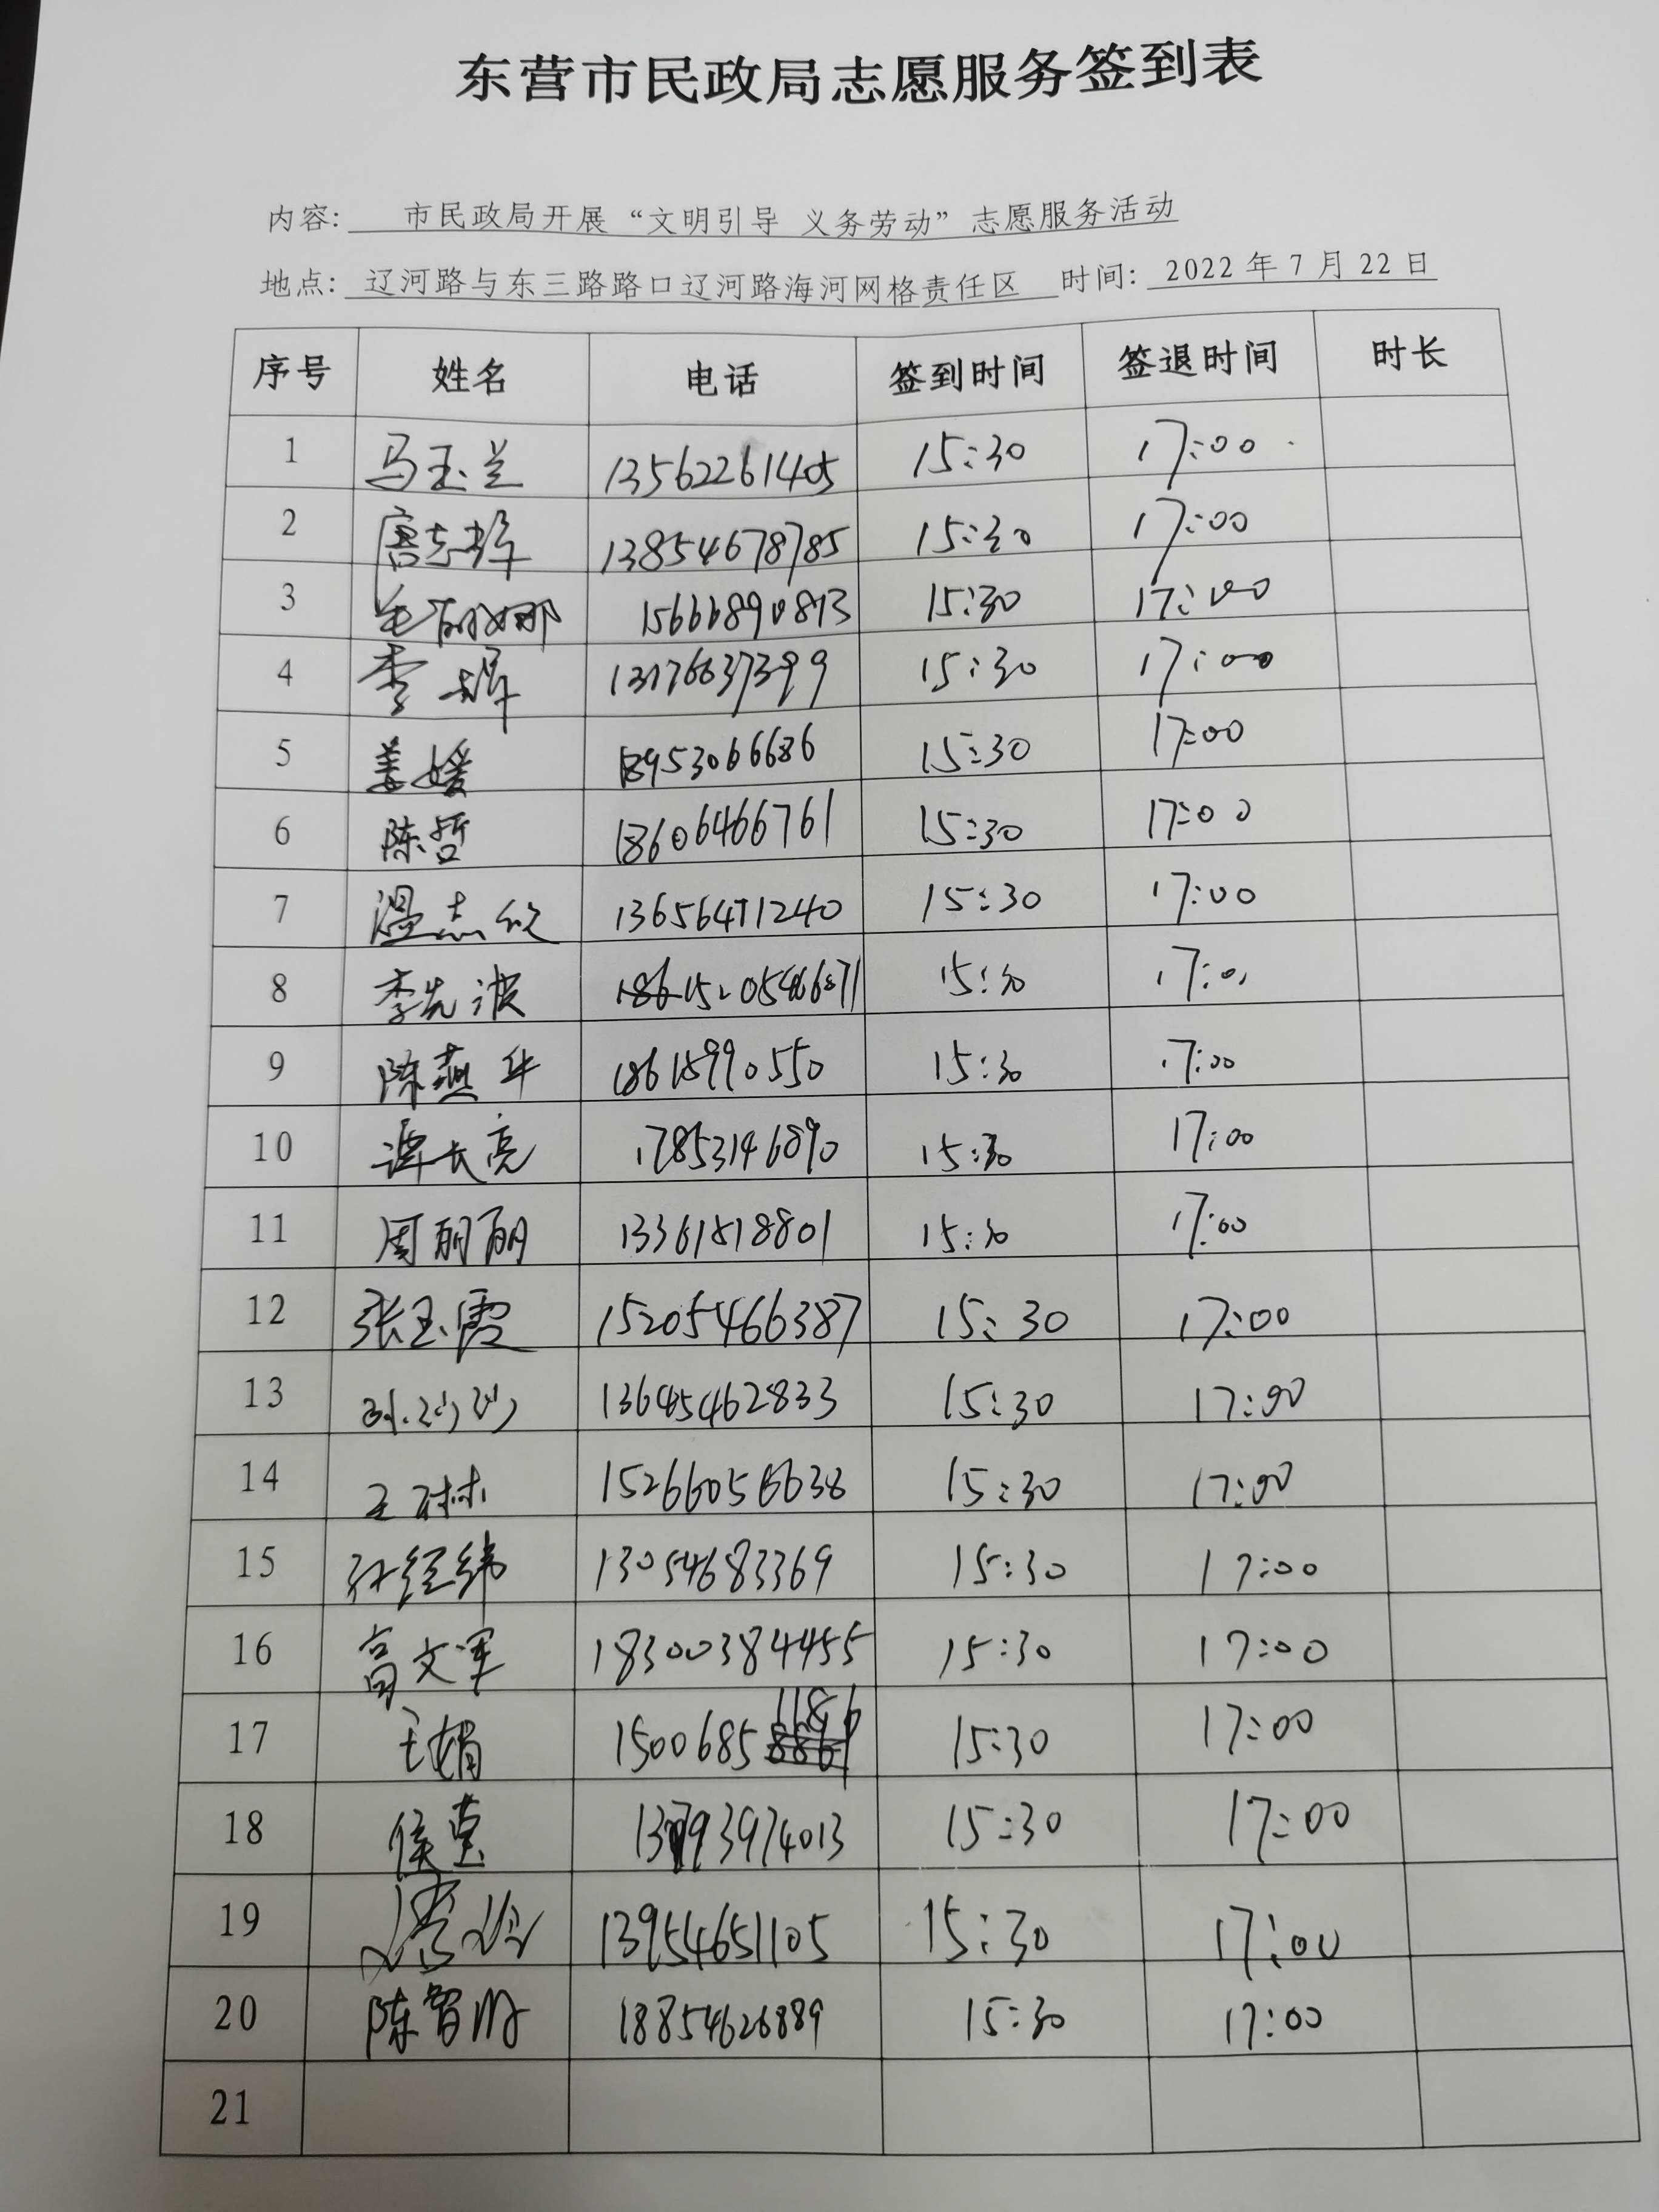 东营市民政局志愿服务签到表
内容: 市民政局开展“文明引导 义务劳动”志愿服务活动
地点: 辽河路与东三路路口辽河路海河网格责任区 时间: 2022年7月22日
序号 姓名 电话 签到时间 签退时间 时长
1 马玉兰 13562261405 15:30 17:00
2 唐志辉 13854678785 15:30 17:00
3 毛丽娜 15666890813 15:30 17:00
4 李辉 13176637399 15:30 17:00
5 姜媛 18953066686 15:30 17:00
6 陈哲 18606466761 15:30 17:00
7 温志欣 13656471240 15:30 17:00
8 李先波 15:30 17:00
9 陈燕华 18615990550 15:30 17:00
10 谭长亮 17853146890 15:30 17:00
11 周丽丽 13361518801 15:30 17:00
12 张玉霞 15205466387 15:30 17:00
13 13645462833 15:30 17:00
14 王林 15266056638 15:30 17:00
15 孙经纬 13054683369 15:30 17:00
16 高文军 18300384455 15:30 17:00
17 王娟 15006851186 15:30 17:00
18 侯莹 13793974013 15:30 17:00
19 13954651105 15:30 17:00
20 陈智明 18854626889 15:30 17:00
21